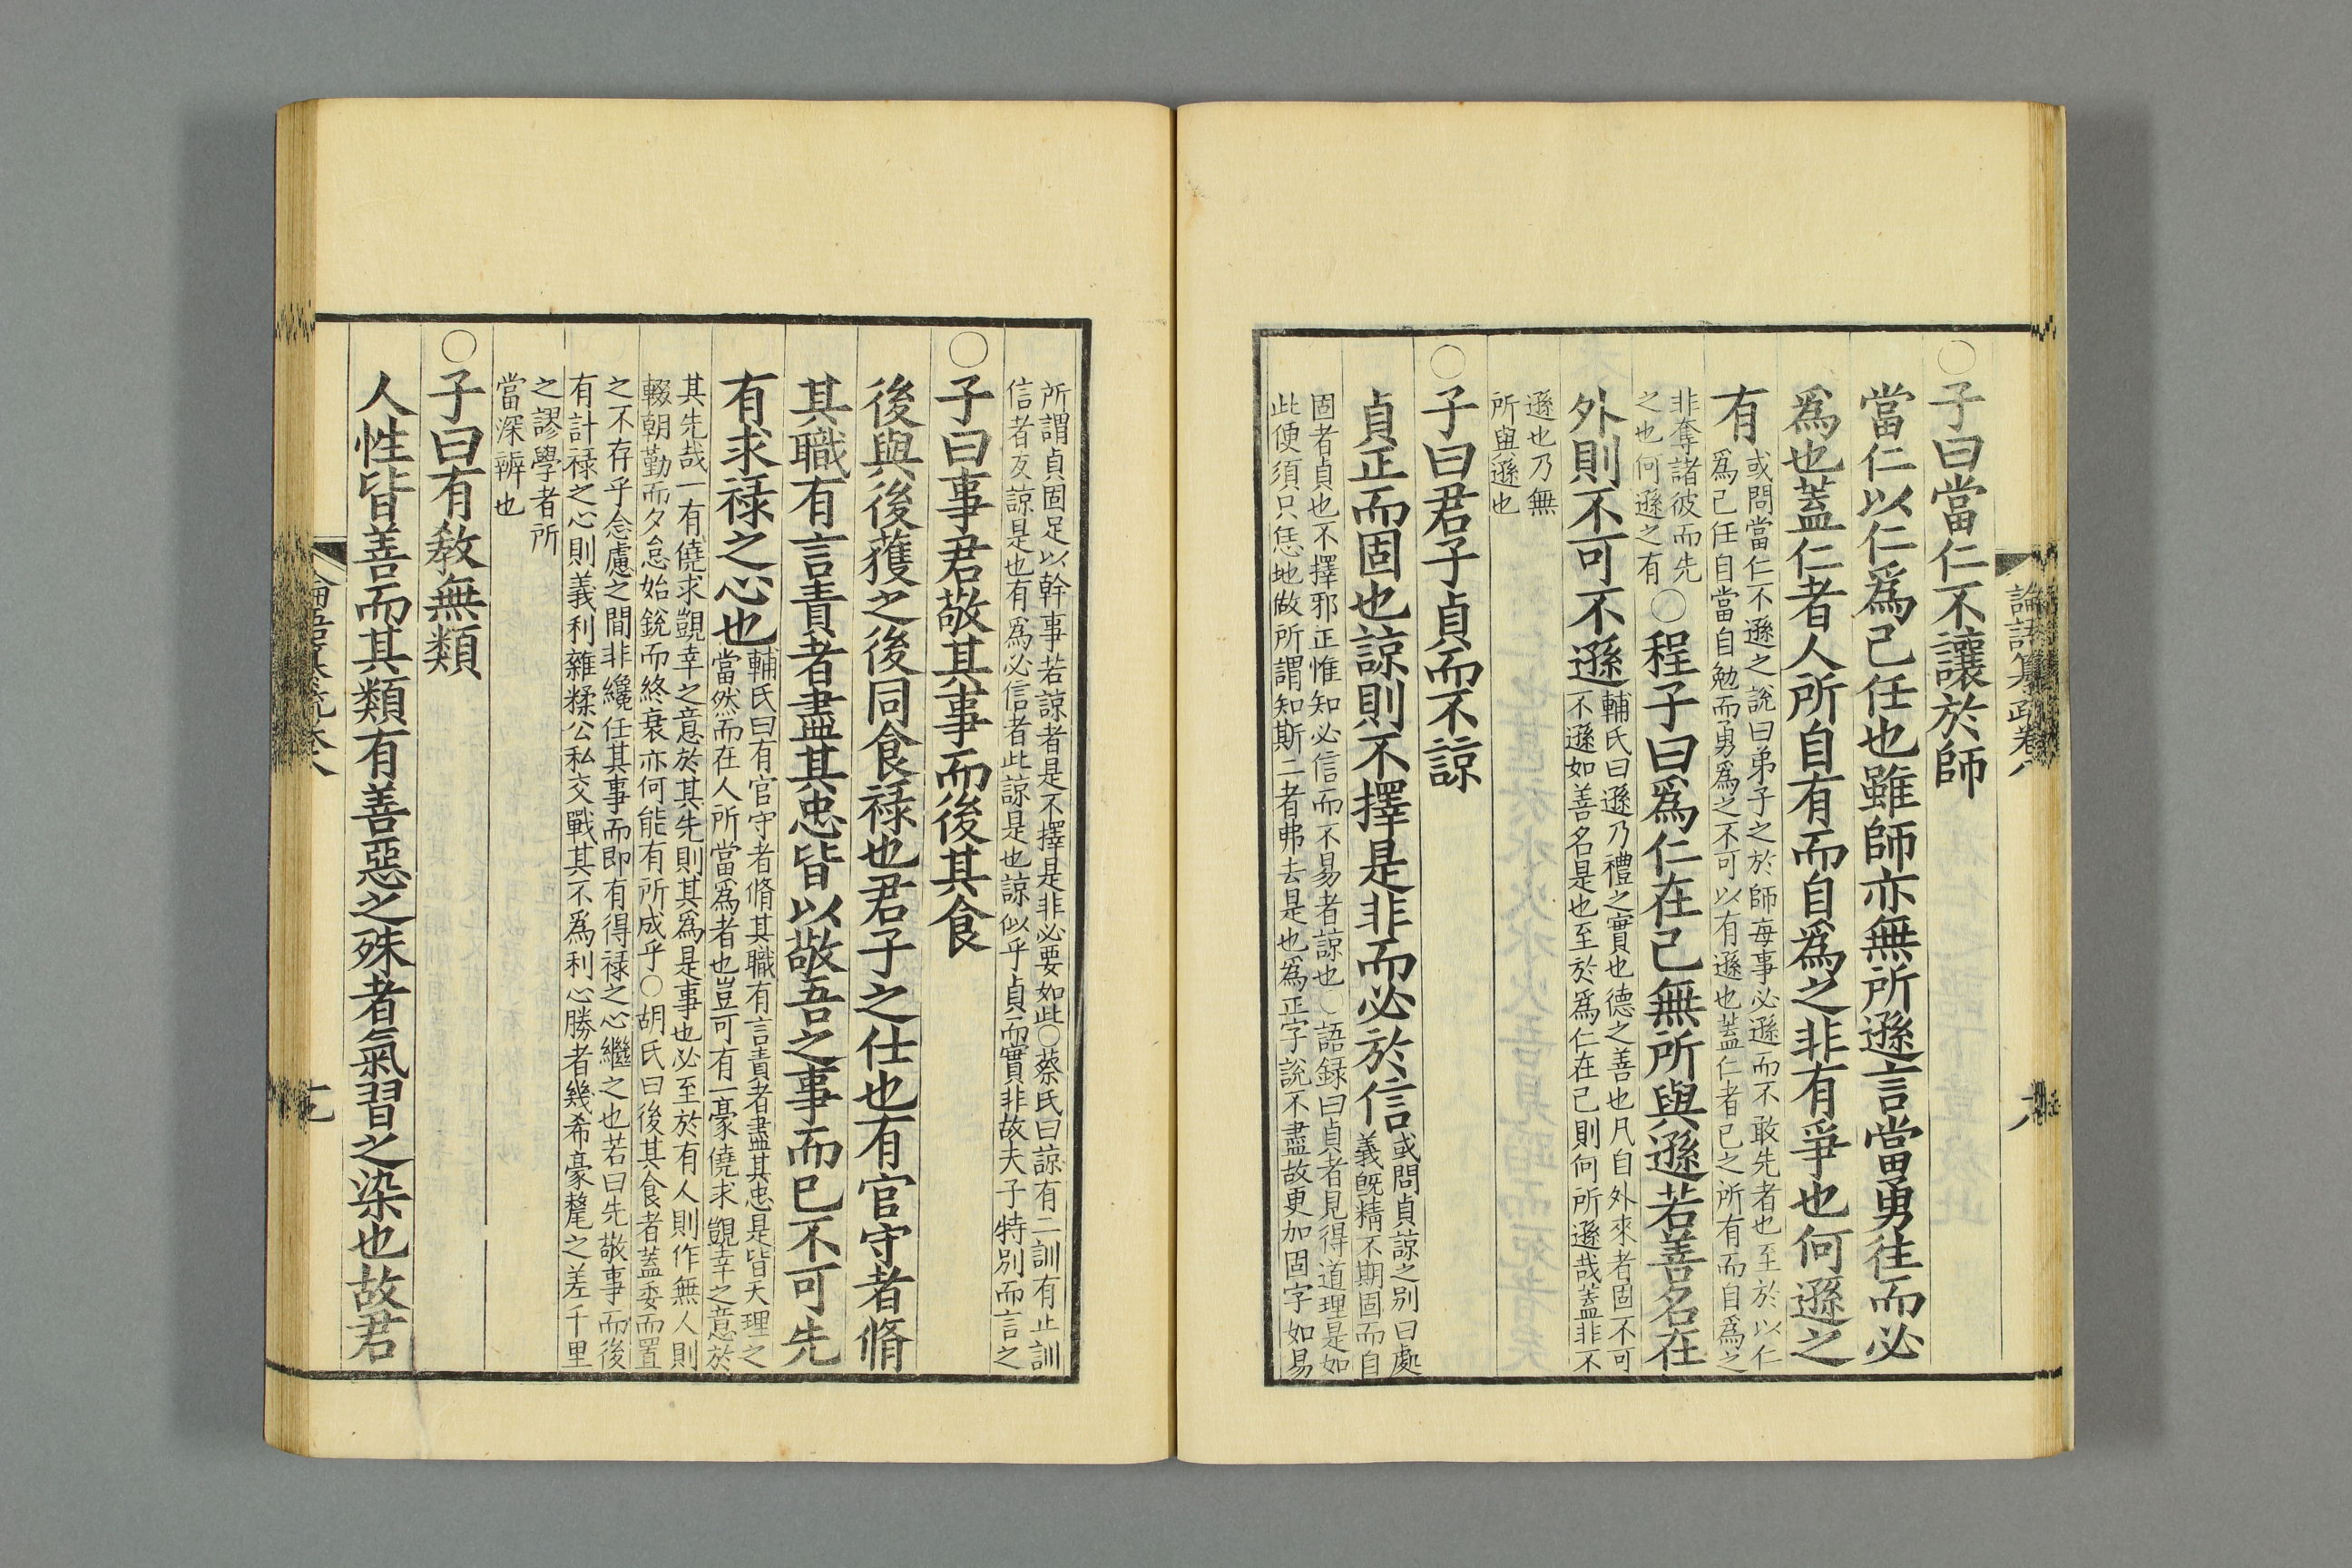 論語纂疏卷八
○子曰當仁不讓於師
當仁以仁爲己任也雖師亦無所遜言當勇往而必
爲也蓋仁者人所自有而自爲之非有爭也何遜之
有
或問當仁不遜之說曰弟子之於師每事必遜而不敢先者也至於以仁
爲己任自當自勉而勇爲之不可以有遜也蓋仁者己之所有而自爲之
非奪諸彼而先
之也何遜之有
○程子曰爲仁在己無所與遜若善名在
外則不可不遜
輔氏曰遜乃禮之實也德之善也凡自外來者固不可
不遜如善名是也至於爲仁在己則何所遜哉蓋非不
遜也乃無
所與遜也
○子曰君子貞而不諒
貞正而固也諒則不擇是非而必於信
或問貞諒之别曰處
義旣精不期固而自
固者貞也不擇邪正惟知必信而不易者諒也○語録曰貞者見得道理是如
此便須只恁地做所謂知斯二者弗去是也爲正字說不盡故更加固字如易
所謂貞固足以幹事若諒者是不擇是非必要如此○蔡氏曰諒有二訓有止訓
信者友諒是也有爲必信者此諒是也諒似乎貞而實非故夫子特别而言之
○子曰事君敬其事而後其食
後與後獲之後同食禄也君子之仕也有官守者脩
其職有言責者盡其忠皆以敬吾之事而已不可先
有求禄之心也
輔氏曰有官守者脩其職有言責者盡其忠是皆天理之
當然而在人所當爲者也豈可有一豪僥求覬幸之意於
其先哉一有僥求覬幸之意於其先則其爲是事也必至於有人則作無人則
輟朝勤而夕怠始銳而終衰亦何能有所成乎○胡氏曰後其食者蓋委而置
之不存乎念慮之間非纔任其事而即有得禄之心繼之也若曰先敬事而後
有計禄之心則義利雜糅公私交戰其不爲利心勝者幾希豪氂之差千里
之謬學者所
當深辨也
○子曰有敎無類
人性皆善而其類有善惡之殊者氣習之染也故君